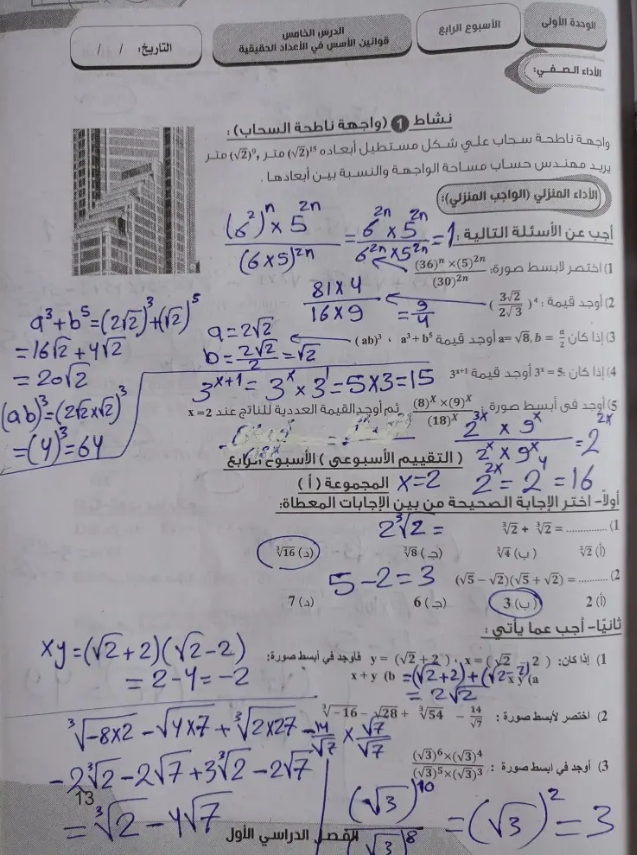 الوحدة الأولى
الأسبوع الرابع
الدرس الخامس
قوانين الأسس في الأعداد الحقيقية
التاريخ: / /
الأداء الصفي:
نشاط 1 (واجهة ناطحة السحاب):
واجهة ناطحة سحاب علي شكل مستطيل أبعاده (√2)¹⁵ متر, (√2)⁹ متر
يريد مهندس حساب مساحة الواجهة والنسبة بين أبعادها.
الأداء المنزلي (الواجب المنزلي):
(6²)ⁿ × 5²ⁿ / (6×5)²ⁿ = 6²ⁿ × 5²ⁿ / 6²ⁿ × 5²ⁿ = 1
أجب عن الأسئلة التالية:
1) اختصر لأبسط صورة: (36)ⁿ ×(5)²ⁿ / (30)²ⁿ
81 × 4 / 16 × 9 = 9/4
2) أوجد قيمة: (3√2 / 2√3)⁴
a³+b⁵=(2√2)³+(√2)⁵
=16√2+4√2
=20√2
a=2√2
b=2√2/2=√2
3) إذا كان a= √8, b = a/2 أوجد قيمة a³ + b⁵ ، (ab)³
(ab)³=(2√2×√2)³
=(4)³=64
3ˣ⁺¹=3ˣ×3¹=5×3=15
4) إذا كان: 3ˣ = 5 أوجد قيمة 3ˣ⁺¹
5) أوجد في أبسط صورة (8)ˣ ×(9)ˣ / (18)ˣ ثم أوجد القيمة العددية للناتج عند x = 2
2³ˣ × 9ˣ / 2ˣ × 9ˣ = 2²ˣ
x=2 2²ˣ = 2⁴ = 16
(التقييم الأسبوعي) الأسبوع الرابع
المجموعة (أ)
أولاً- اختر الإجابة الصحيحة من بين الإجابات المعطاة:
1) ∛2 + ∛2 = ............
2∛2 =
(أ) ∛2 (ب) ∛4 (جـ) ∛8 (د) ∛16
2) (√5 − √2)(√5 + √2) = ..........
5-2=3
(أ) 2 (ب) 3 (جـ) 6 (د) 7
ثانيًا- أجب عما يأتي:
1) إذا كان: x = (√2 − 2) ، y = (√2 + 2) فأوجد في أبسط صورة:
a) x y b) x + y
=(√2+2)+(√2-2)
= 2√2
xy=(√2+2)(√2-2)
= 2-4=-2
2) اختصر لأبسط صورة: ∛−16 − √28 + ∛54 − 14/√7
∛-8×2 - √4×7 + ∛2×27 - 14/√7 × √7/√7
-2∛2-2√7+3∛2-2√7
= ∛2-4√7
3) أوجد في أبسط صورة: (√3)⁶×(√3)⁴ / (√3)⁵×(√3)³
(√3)¹⁰ / (√3)⁸ = (√3)² = 3
13
الفصل الدراسي الأول